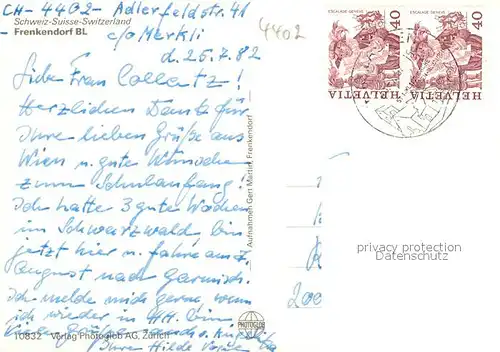 CH-4402- Adlerfeldstr. 41
Schweiz-Suisse-Switzerland
Frenkendorf BL
c/o Merkli
4402
d. 25.7.82
Liebe Frau Collatz!
Herzlichen Dank für
Ihre lieben Grüße aus
Wien u. gute Wünsche
zum Schulanfang!
Ich hatte 3 gute Wochen
im Schwarzwald bin
jetzt hier u. fahre am 7.
August nach Garmisch.
Ich melde mich gerne, wenn
ich wieder in HH. bin
Ihre Hilde
10832 Verlag Photoglob AG, Zürich
Aufnahme: Gert Martin, Frenkendorf
PHOTOGLOB
ESCALADE GENEVE
40
HELVETIA
ESCALADE GENEVE
40
HELVETIA
200
privacy protection
Datenschutz